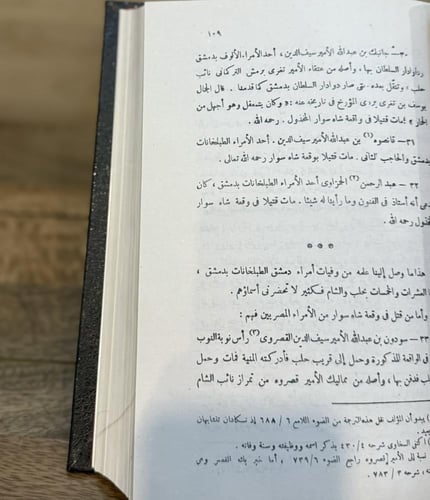 ١٠٩
جانبك بن عبدالله الأمير سيف الدين ، أحد الأمراء الألوف بدمشق
السلطان بها، وأصله من عتقاء الأمير تغرى برمش التركمانى نائب
حلب ، وتنقل بعده حتى صار دوادار السلطان بدمشق كما قدمنا . قال الجمال
يوسف بن تغرى بردى المؤرخ فى تاريخه عنه : « وكان يتمعقل وهو أجهل من
مات قتيلا فى واقعة شاه سوار المخذول . رحمه الله .
٣١ – قانصوه (١) بن عبدالله الأمير سيف الدين . أحد الأمراء الطبلخانات
بدمشق والحاجب الثانى . مات قتيلا بوقعة شاه سوار رحمه الله تعالى .
٣٢ – عبد الرحمن (٢) الحمزاوى أحد الأمراء الطبلخانات بدمشق ، كان
أنه أستاذ فى الفنون وما رأينا له شيئا . مات قتيلا فى وقعة شاه سوار
رحمه الله .
* * *
هذا ما وصل إلينا علمه من وفيات أمراء دمشق الطبلخانات بدمشق ،
العشرات والخمسات بحلب والشام فكثير لا تحضرنى أسماؤهم .
وأما من قتل فى وقعة شاه سوار من الأمراء المصريين فهم :
٣٣ – سودون بن عبدالله الأمير سيف الدين القصروى (٣) رأس نوبة النوب
فى الواقعة المذكورة وحمل إلى قريب حلب فأدركته المنية فمات وحمل
حلب فدفن بها ، وأصله من مماليك الأمير قصروه من تمراز نائب الشام
يبدو أن المؤلف نقل هذه الترجمة من الضوء اللامع ٦ / ٦٨٨ إذ تتكادان تتشابهان
السخاوى شرحه ٤/ ٤٣٠ بذكر اسمه ووظيفته وسنة وفاته .
نسبة إلى الأمير قصروه راجع الضوء ٦/ ٧٣٩ ، أما خير بك القصروى
شرحه ٣ / ٧٨٣ .